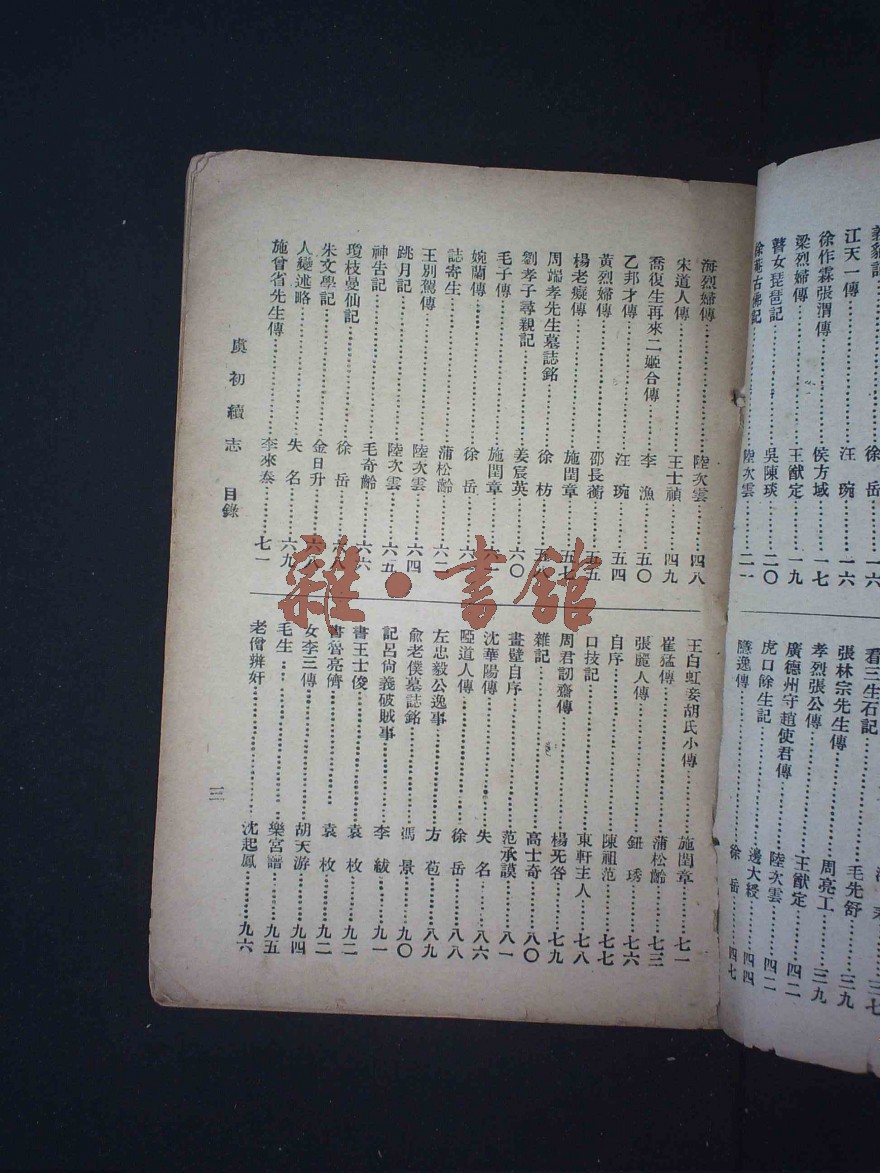 徐岳……一六
江天一傳……汪琬……一六
徐作霖張渭傳……侯方域……一七
梁烈婦傳……王猷定……一九
瞽女琵琶記……吳陳琰……二〇
古佛記……陸次雲……二一
看三生石記……毛先舒……三九
張林宗先生傳……周亮工……三九
孝烈張公傳……王猷定……四二
廣德州守趙使君傳……陸次雲……四二
虎口餘生記……邊大綬……四四
隱逸傳……徐岳……四七
海烈婦傳……陸次雲……四八
宋道人傳……王士禎……四九
喬復生再來二姬合傳……李漁……五〇
乙邦才傳……汪琬……五四
黃烈婦傳……邵長蘅……五五
楊老癡傳……施閏章……五七
周端孝先生墓誌銘……徐枋……五九
劉孝子尋親記……姜宸英……六〇
毛子傳……施閏章……六一
婉蘭傳……徐岳……六
誌寄生……蒲松齡……六二
王別駕傳……陸次雲……六四
跳月記……陸次雲……六五
神告記……毛奇齡……六六
瓊枝曼仙記……徐岳……六八
朱文學記……金日升……六八
人變述略……失名……六九
施曾省先生傳……李來泰……七一
王白虹妾胡氏小傳……施閏章……七一
崔猛傳……蒲松齡……七三
張麗人傳……鈕琇……七六
自序……陳祖范……七七
口技記……東軒主人……七八
周君訒齋傳……楊旡咎……七九
雜記……高士奇……八〇
畫壁自序……范承謨……八一
沈華陽傳……失名……八六
啞道人傳……徐岳……八八
左忠毅公逸事……方苞……八九
兪老僕墓誌銘……馮景……九〇
記呂尙義破賊事……李紱……九一
書王士俊……袁枚……九二
書魯亮儕……袁枚……九二
女李三傳……胡天游……九四
毛生……樂宮譜……九五
老僧辨奸……沈起鳳……九六
虞初續志 目錄
三
雜·書館